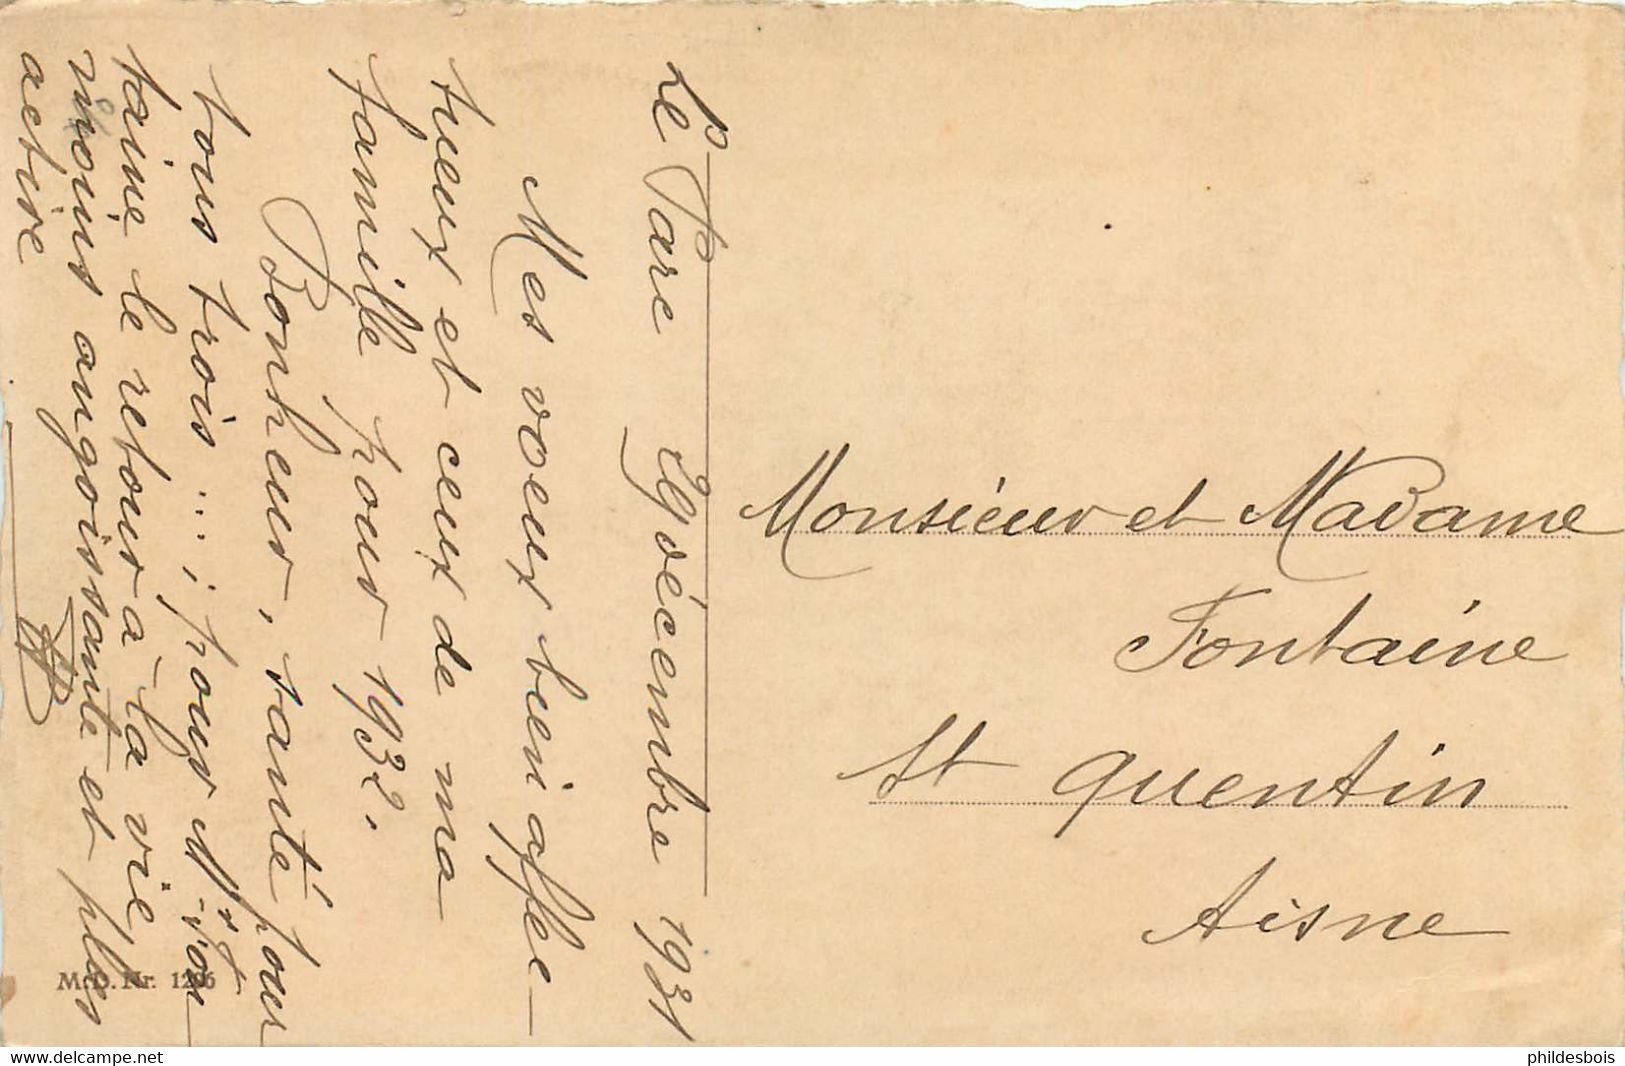 Le Parc 29 décembre 1931
Mes voeux bien affec-
tueux et ceux de ma
famille pour 1932.
Bonheur, santé pour
tous trois ... ; pour Mr Fon-
taine le retour à la vie
moins angoissante et plus
active
Monsieur et Madame
Fontaine
St Quentin
Aisne
M.D. Nr. 1206
www.delcampe.net
phildesbois